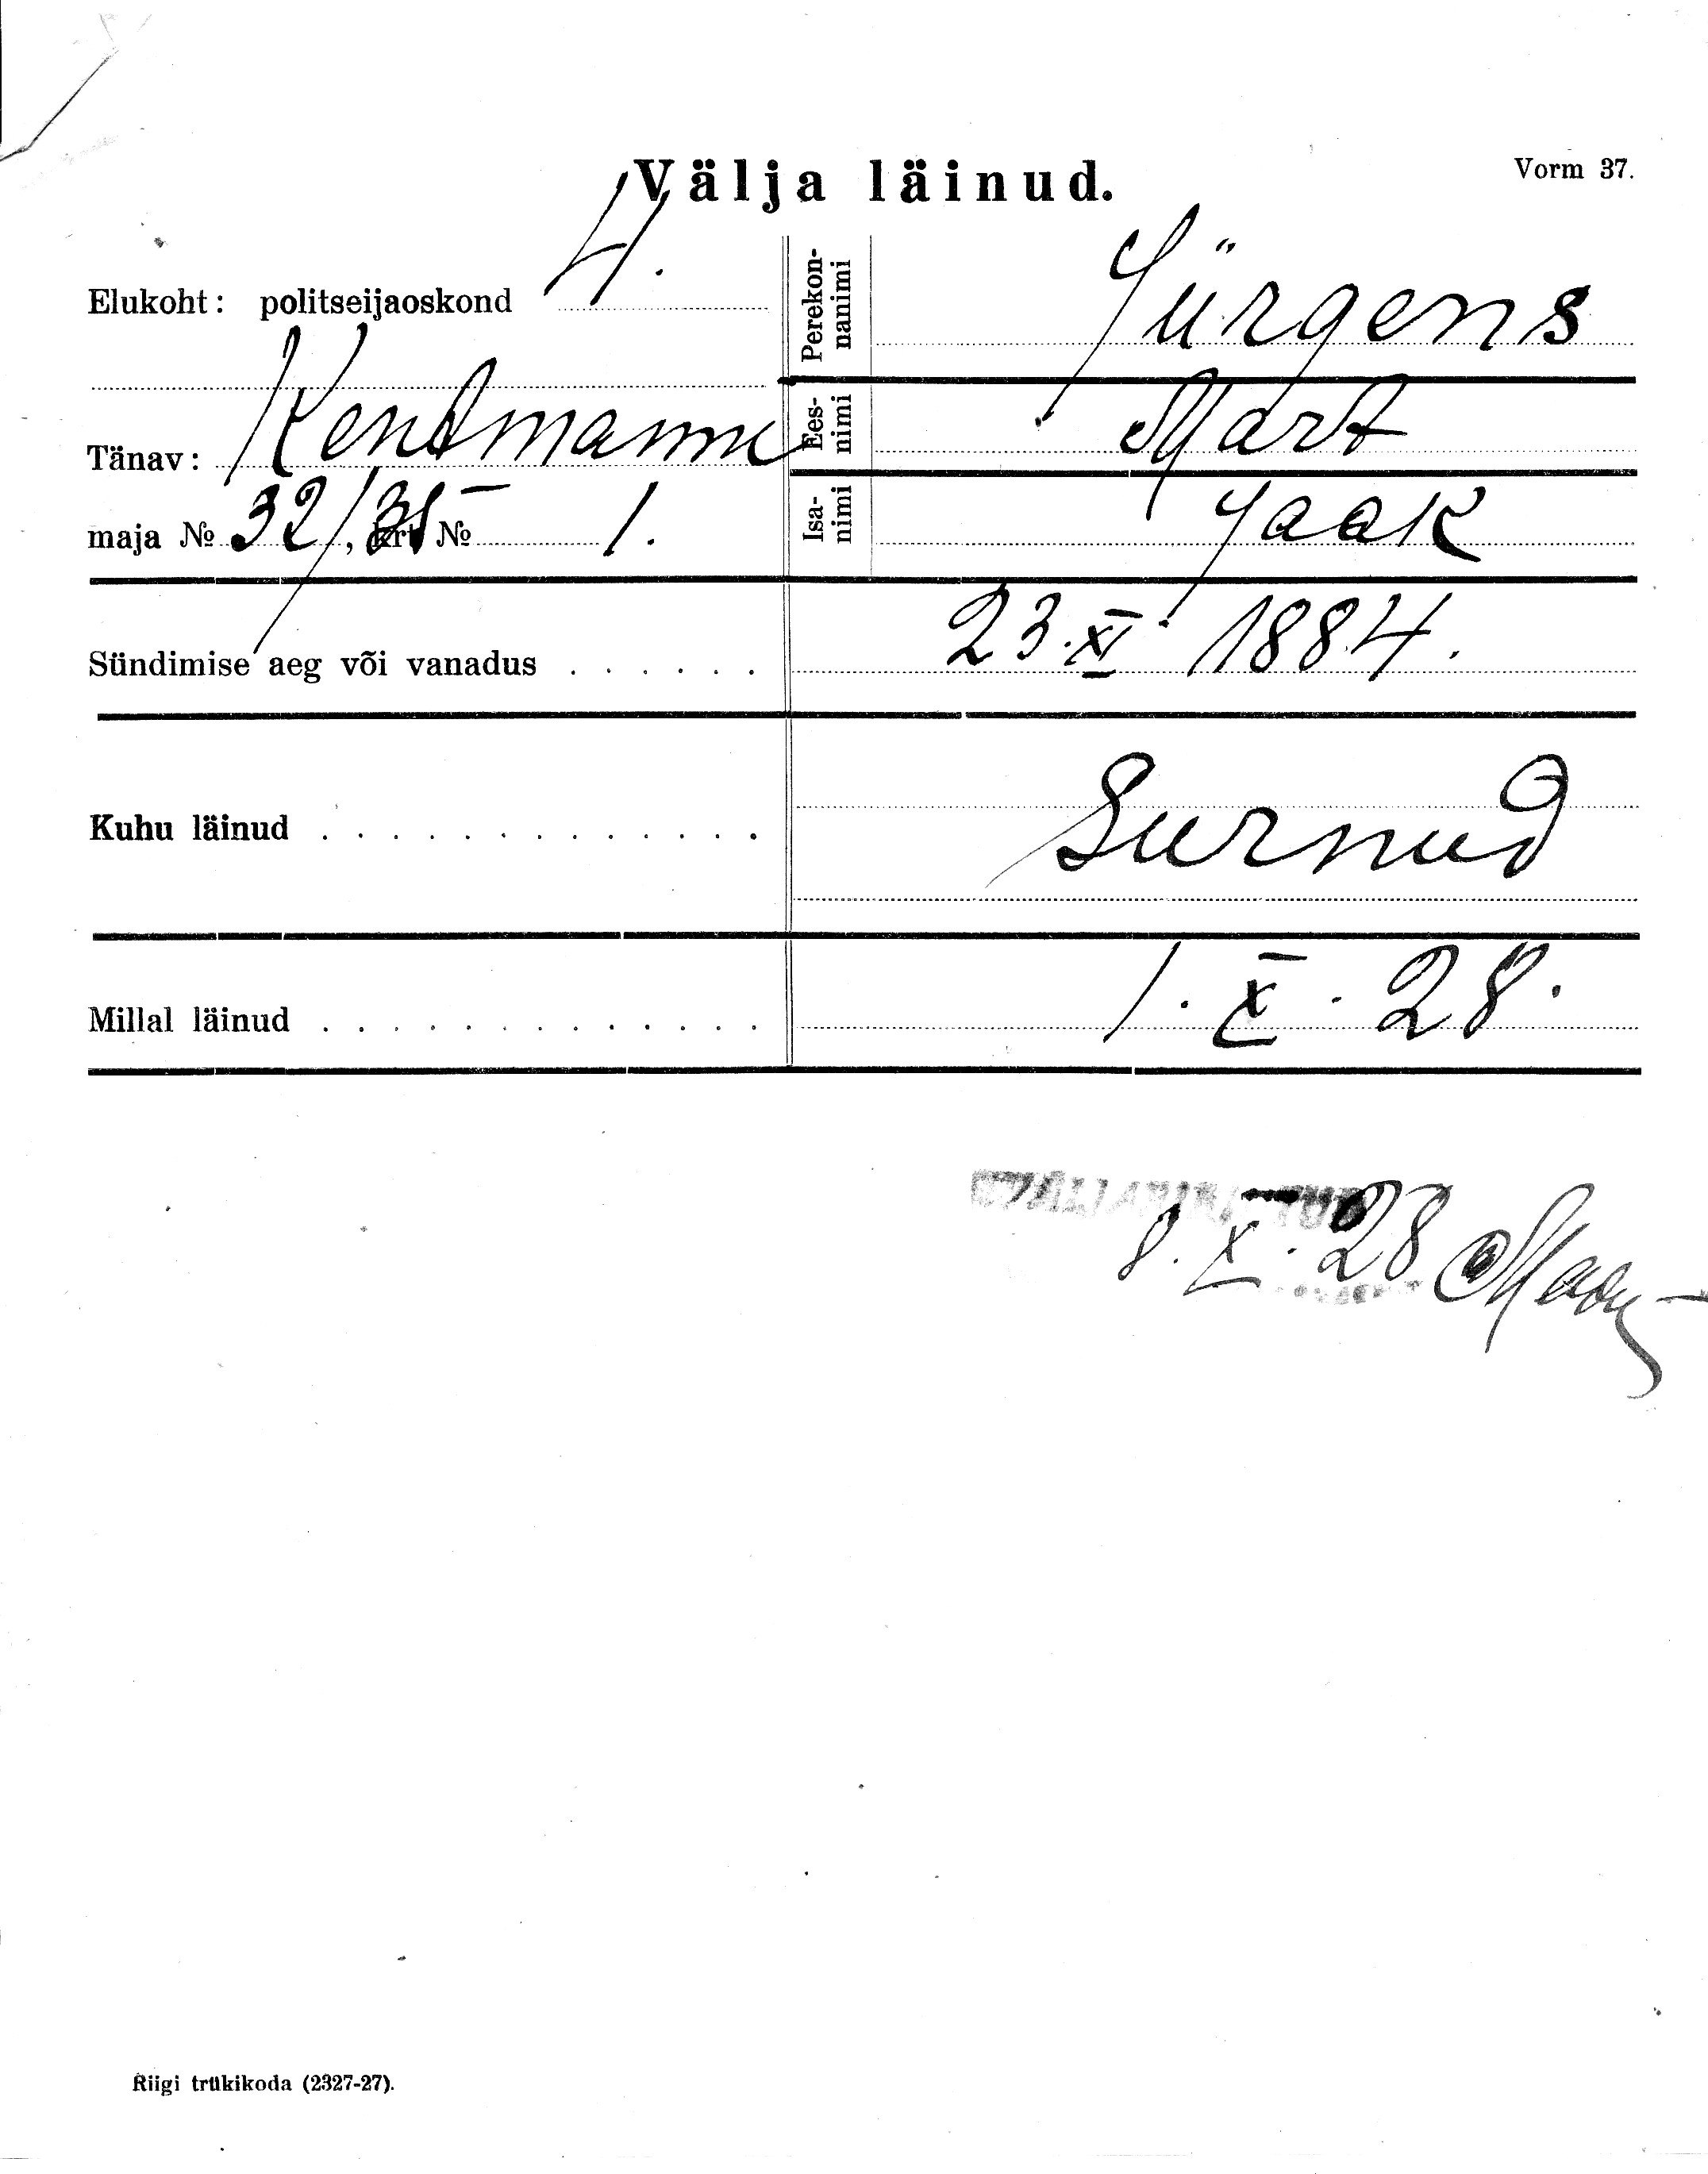 Vorm 37.
Välja läinud.
Elukoht: politseijaoskond 4.
Tänav: Kentmanni
maja № 32/35, krt. № 1.
Perekonnanimi Jürgens
Eesnimi Mart
Isanimi Jaak
Sündimise aeg või vanadus . . . . . . 23. XI. 1884.
Kuhu läinud . . . . . . . . . . . . . Surnud
Millal läinud . . . . . . . . . . . . . 1. X. 28.
8. X. 28
Riigi trükikoda (2327-27).